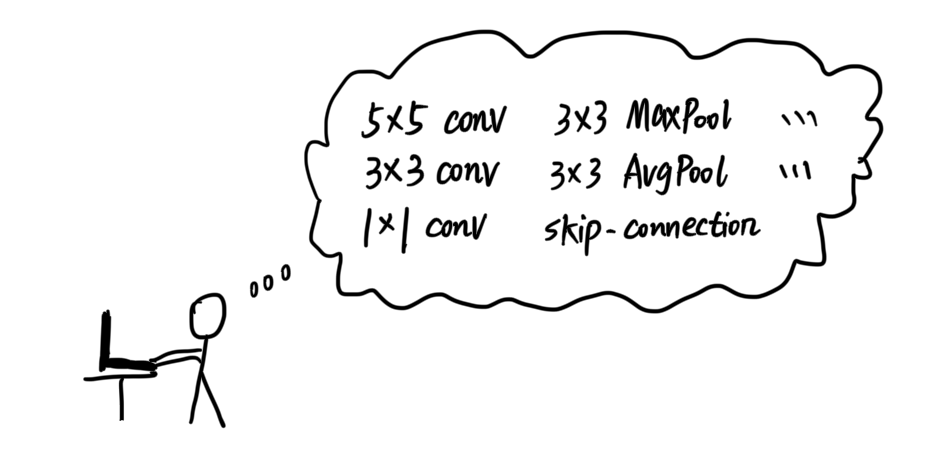 5×5 conv 3×3 MaxPool ...
3×3 conv 3×3 AvgPool ...
1×1 conv skip-connection